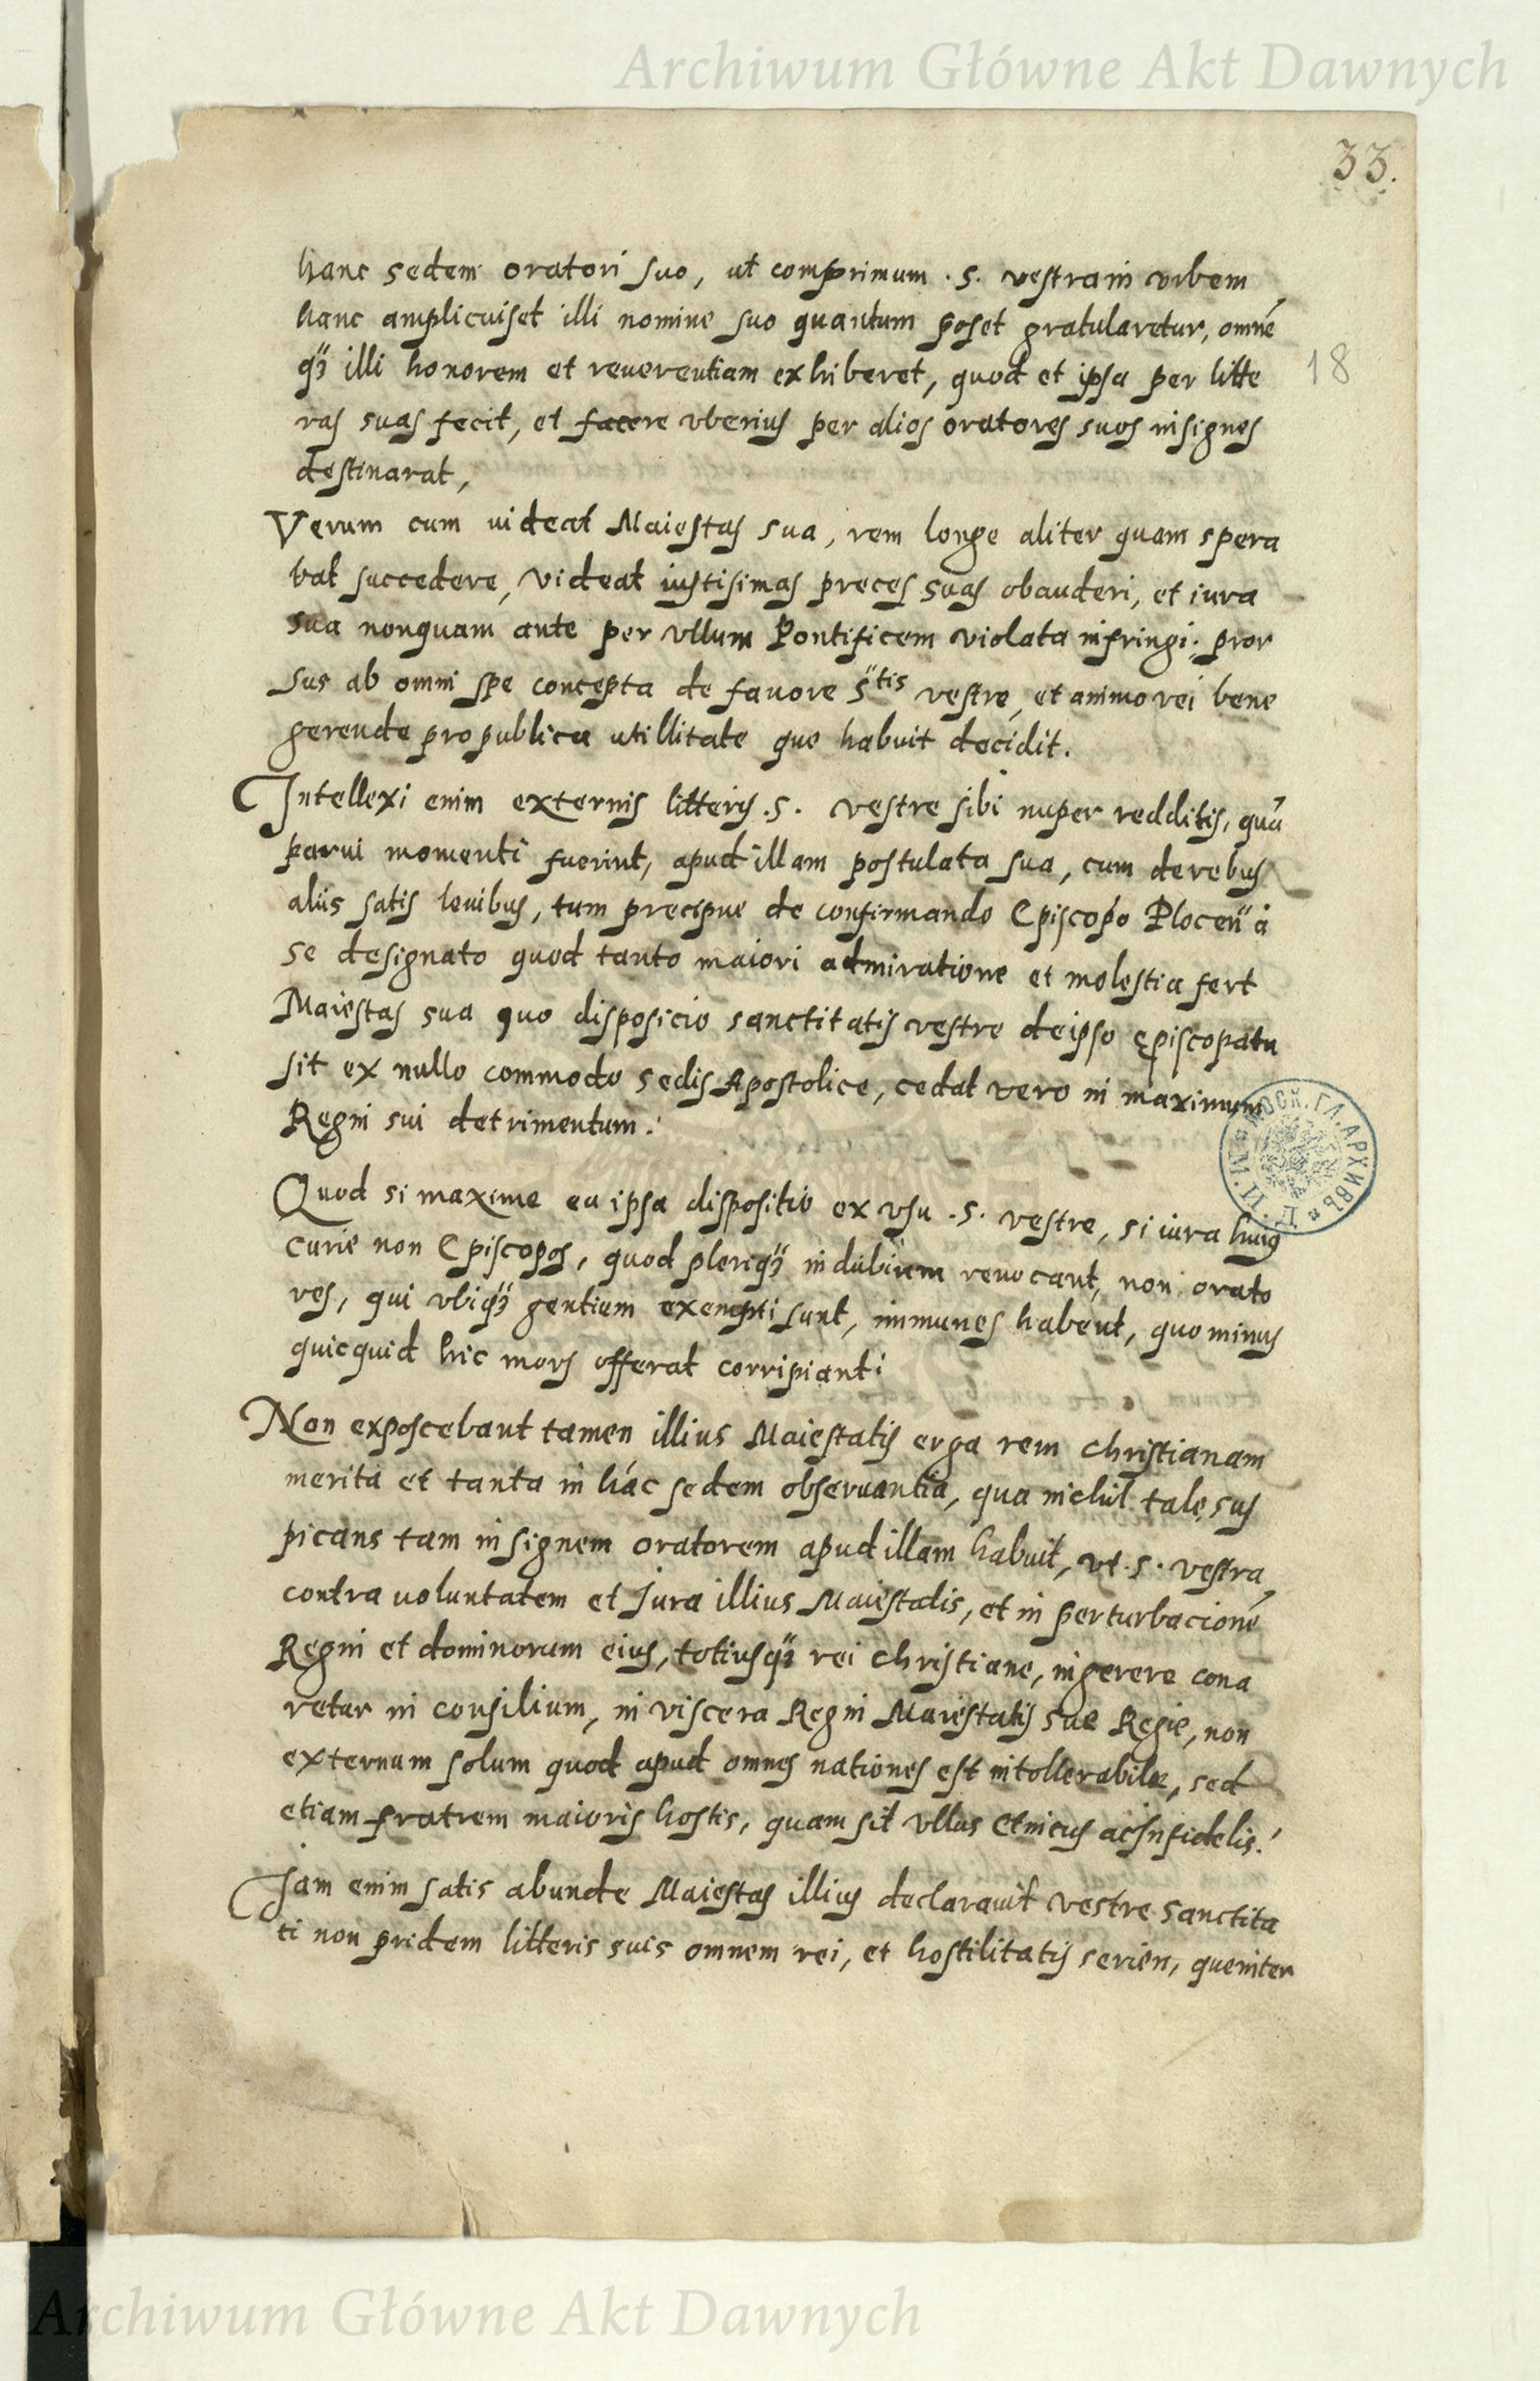 Archiwum Główne Akt Dawnych
33.
hanc sedem oratori suo, ut comprimum .S. vestra in vrbem
hanc amplicuiset illi nomine suo quantum poset gratularetur, omnē
q₃ illi honorem et reuerentiam exhiberet, quod et ipsa per litte
18
ras suas fecit, et facere vberius per alios oratores suos insignes
destinarat,
Verum cum uideat Maiestas sua, rem longe aliter quam spera
bat succedere, videat iustisimas preces suas obauderi, et iura
sua nonquam ante per vllum Pontificem violata infringi: pror
sus ab omni spe concepta de fauore S.tis vestre, et animo rei bene
gerende pro publica utillitate quo habuit decidit.
Intellexi enim externis litteris .S. vestre sibi nuper redditis, quā
parui momenti fuerint, apud illam postulata sua, cum de rebus
aliis satis leuibus, tum precipue de confirmando Episcopo Plocen̄ à
se designato quod tanto maiori admiratione et molestia fert
Maiestas sua quo disposicio sanctitatis vestre de ipso episcopatu
sit ex nullo commodo sedis Apostolice, cedat vero in maximum
Regni sui detrimentum.
МОСК. ГЛ. АРХИВЪ
Quod si maxime ea ipsa dispositio ex vsu .S. vestre, si iura huiꝰ
curie non Episcopos, quod pleriq₃ in dubium reuocant, non orato
res, qui vbiq₃ gentium exempti sunt, immunes habent, quominus
quicquid hic mors offerat corripiant:
Non exposcebant tamen illius Maiestatis erga rem christianam
merita et tanta in hāc sedem obseruantia, qua nichil tale sus
picans tam insignem oratorem apud illam habuit, vt .S. vestra
contra uoluntatem et Jura illius Maiestatis, et in perturbacionē
Regni et dominorum eius, totiusq₃ rei christiane, ingerere cona
retur in consilium, in viscera Regni Maiestatis sue Regie, non
externum solum quod apud omnes nationes est intollerabile, sed
etiam fratrem maioris hostis, quam sit vllus Etnicus ac Infidelis.
Jam enim satis abunde Maiestas illius declarauit vestre sanctita
ti non pridem litteris suis omnem rei, et hostilitatis serien, que inter
Archiwum Główne Akt Dawnych